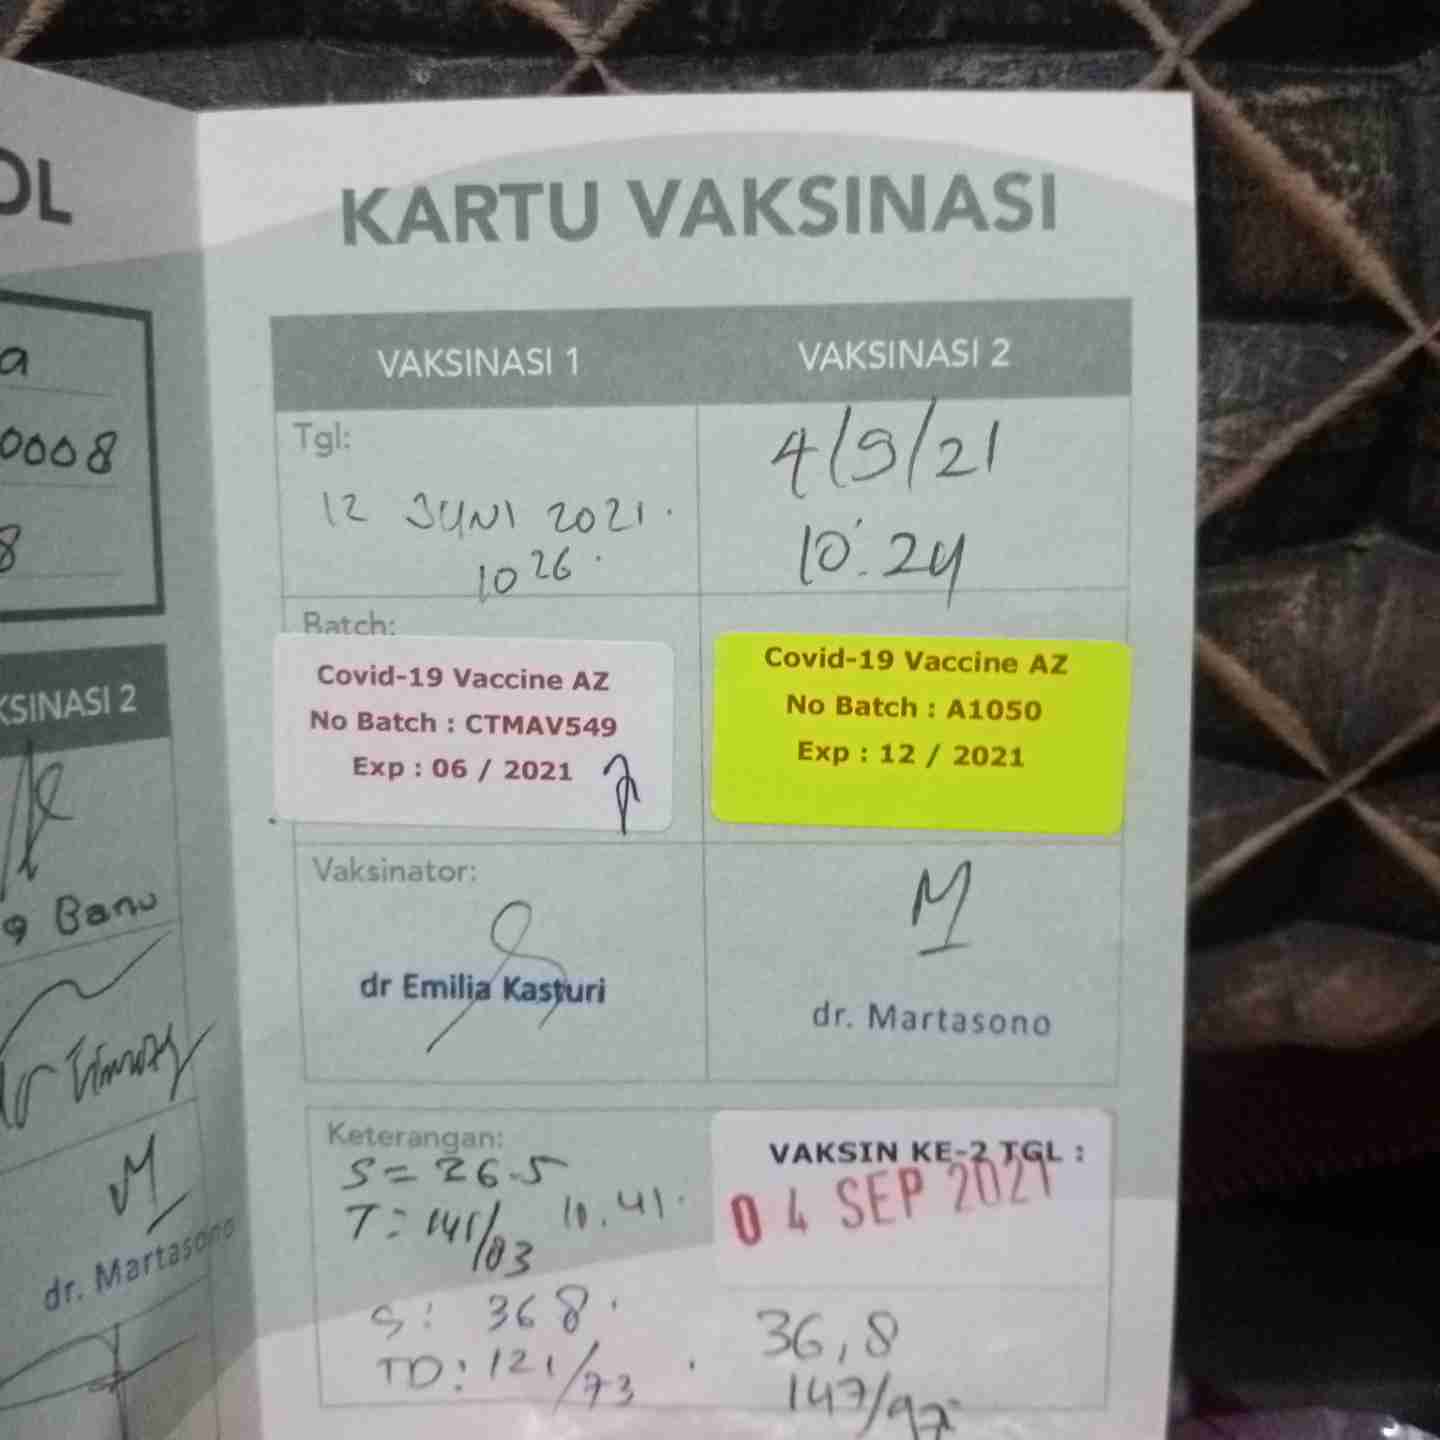 OL
a
0008
8
KSINASI 2
g Banu
dr. Martasono
KARTU VAKSINASI
VAKSINASI 1
VAKSINASI 2
Tgl:
12 JUNI 2021.
10 26.
4/9/21
10.24
Batch:
Covid-19 Vaccine AZ
No Batch : CTMAV549
Exp : 06 / 2021
Covid-19 Vaccine AZ
No Batch : A1050
Exp : 12 / 2021
Vaksinator:
dr Emilia Kasturi
M
dr. Martasono
Keterangan:
S = 36.5
T = 141/83 10.41.
S : 368.
TD : 121/73
VAKSIN KE-2 TGL :
04 SEP 2021
36,8
147/97